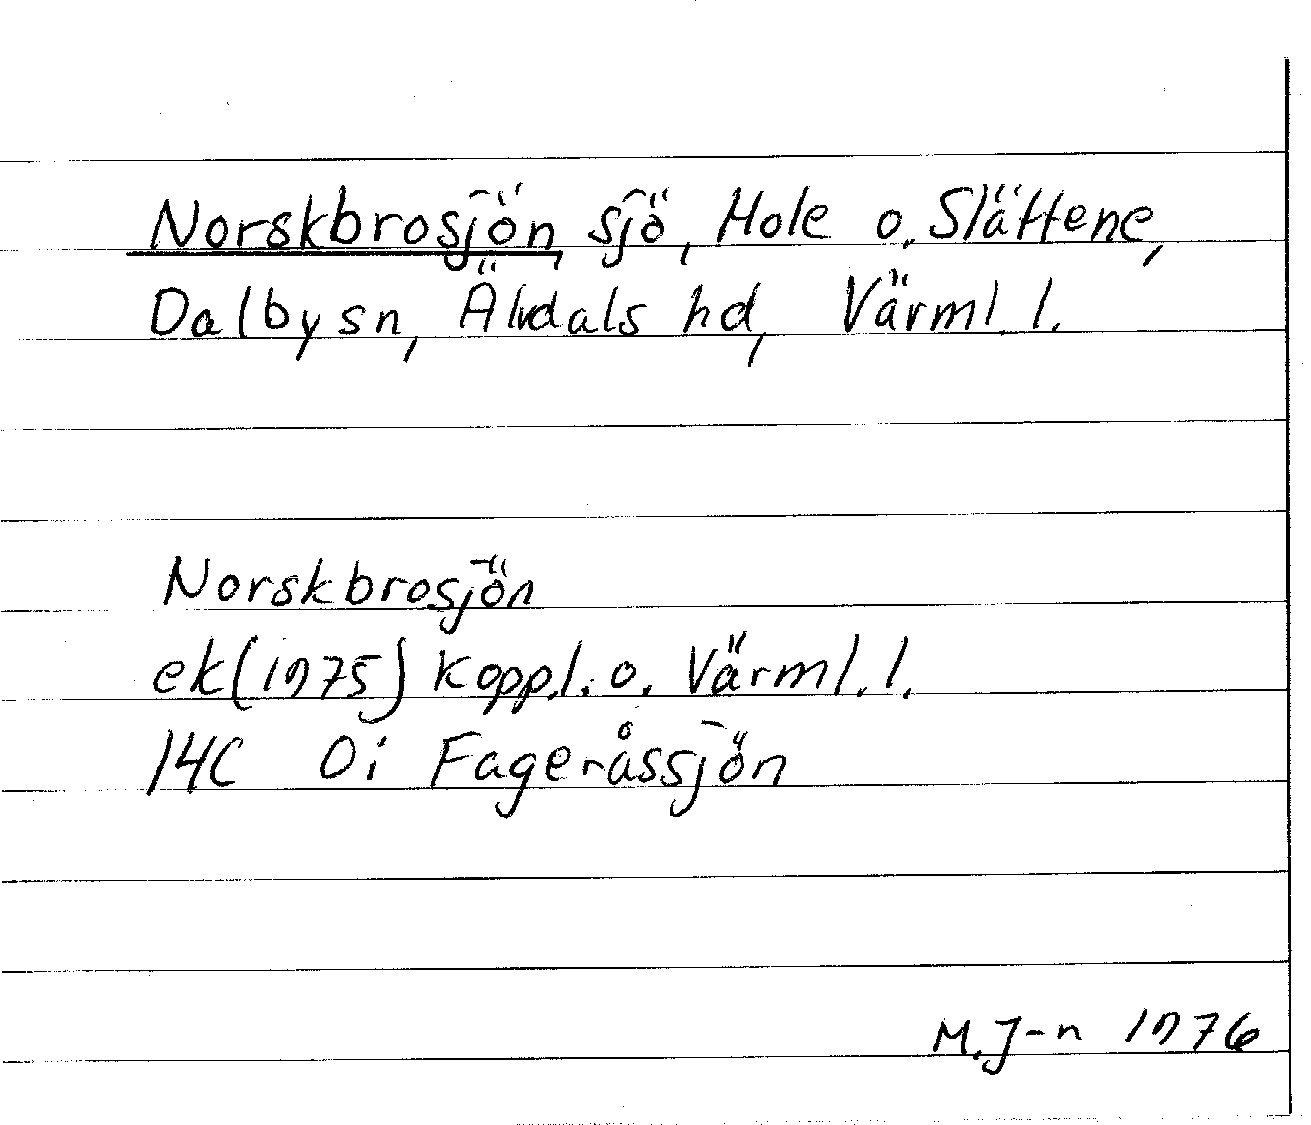 Norskbrosjön, sjö, Hole o. Slättene,
Dalby sn, Älvdals hd, Värml. l.
Norskbrosjön
ek(1975) Koppl. o. Värml. l.
14C 0i Fageråssjön
M.J-n 1976